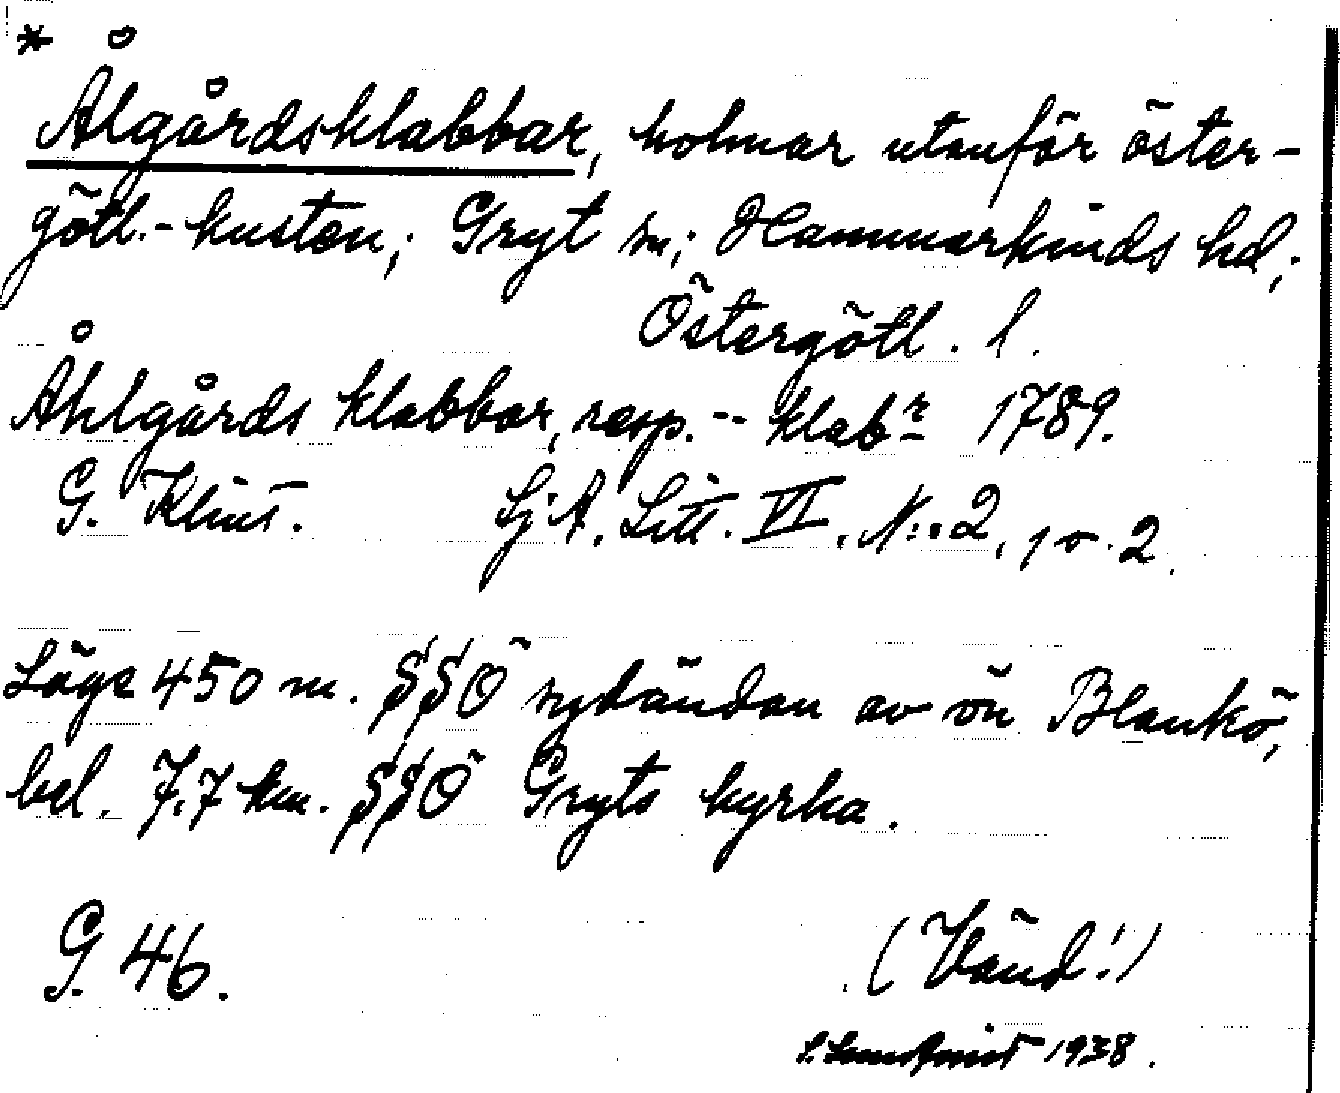 * Ålgårdsklabbar, holmar utanför öster-
götl.-kusten; Gryt sn; Hammarkinds hd;
Östergötl. l.
Åhlgårds klabbar, resp. -- klabr 1789.
G. Klint. SjA. Litt. VI. N:o 2, 1 o. 2.
Läge 450 m. SSÖ sydändan av ön Blankö,
bel. 7,7 km. SSÖ Gryts kyrka.
G. 46. (Vänd!)
1938.